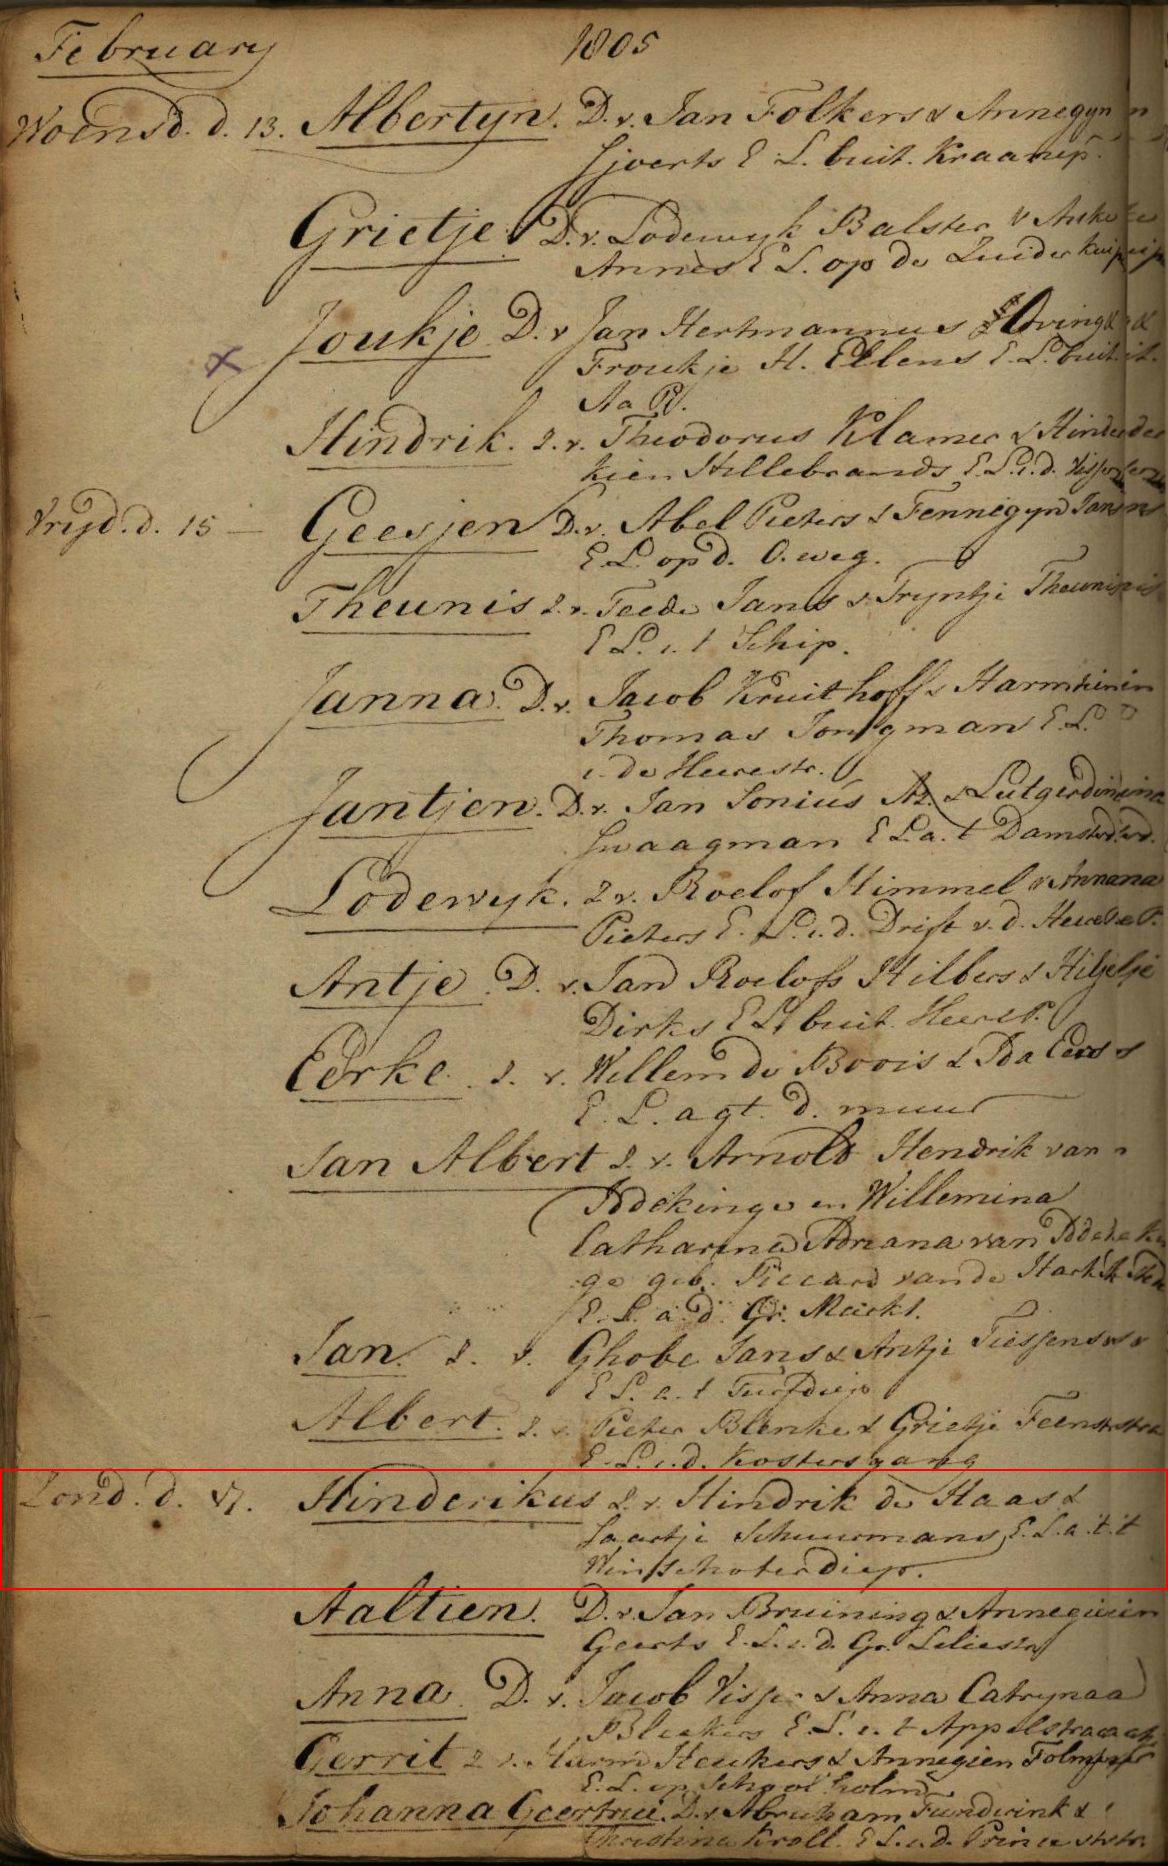 February 1805
Woensd. d. 13. Albertyn. D. v. Jan Folkers & Annegyn
Sjoerts E. L. buit. Kraanep.
Grietje D. v. Lodewyk Balster & Anke
Annes E L. op de Zuiderkuip
Joukje D. v Jan Hertmannus Ovinga &
Froukje H. Ellens E. L. buit.
Aa P.
Hindrik. Z. v. Theodorus Klamer & Hinder
kien Hillebrands E. L. i. d. Visser
Vryd. d. 15 - Geesjen D. v. Abel Pieters & Fennegyn Jans
E L op d. O. weg.
Theunis Z. v. Feede Jans & Tryntje Theunis
E L. i. t Schip.
Janna. D. v. Jacob Kruithoff & Harmina
Thomas Jongman E. L.
i. de Heerestr.
Jantjen. D. v. Jan Sonius Az. & Lutgerdina
Swaagman E L. a. t Damsterd.
Lodewyk. Z v. Roelof Himmel & Anna
Pieters E. L. i. d. Drift v. d. Heere P.
Antje. D. v. Jan Roelofs Hilbers & Hiltje
Dirks E L. buit. Heere P.
Eerke. Z. v. Willem de Boois & Ida Eerkes
E. L. agt. d. muur
Jan Albert Z. v. Arnold Hendrik van
Iddekinge en Willemina
Catharina Adriana van Iddekin
ge geb. Piccard van de
E. L. a. d. Gr. Markt.
Jan. Z. v. Ghobe Jans & Antje Tiessens
E L. a. t Turfdiep
Albert. Z. v. Pieter Blenke & Grietje Feenstra
E. L. i. d. Kostersgang
Zond. d. 17. Hinderikus Z. v. Hindrik de Haas &
Saartje Schuurmans E. L. a. t
Winschoterdiep.
Aaltien. D. v. Jan Bruining & Annegien
Geerts E. L. i. d. Gr. Leliestr
Anna. D. v. Jacob Visser & Anna Catryna
Bleekers E. L. i. t Appelstraat
Gerrit Z v. Harm Heukers & Annegien
E. L. op Schoolholm
Johanna Geertrui. D. v Abraham Funderink &
Christina Kroll. E L. i. d. Princestr.